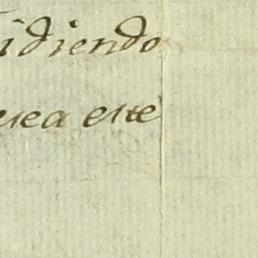 idiendo
sea este